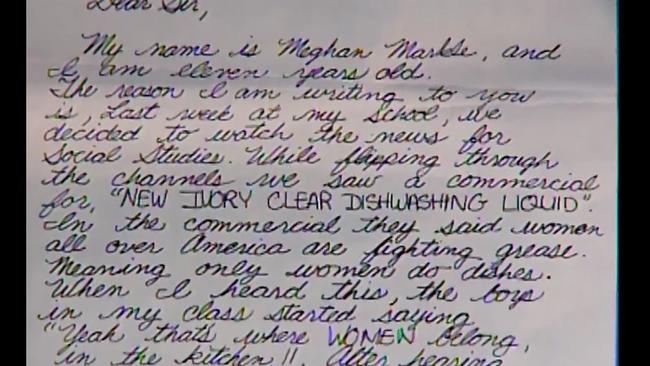 Dear Sir,
My name is Meghan Markle, and
I am eleven years old.
The reason I am writing to you
is, Last week at my school, we
decided to watch the news for
Social Studies. While flipping through
the channels we saw a commercial
for, "NEW IVORY CLEAR DISHWASHING LIQUID".
In the commercial they said women
all over America are fighting grease.
Meaning only women do dishes.
When I heard this, the boys
in my class started saying
"Yeah that's where WOMEN belong,
in the kitchen!! After hearing